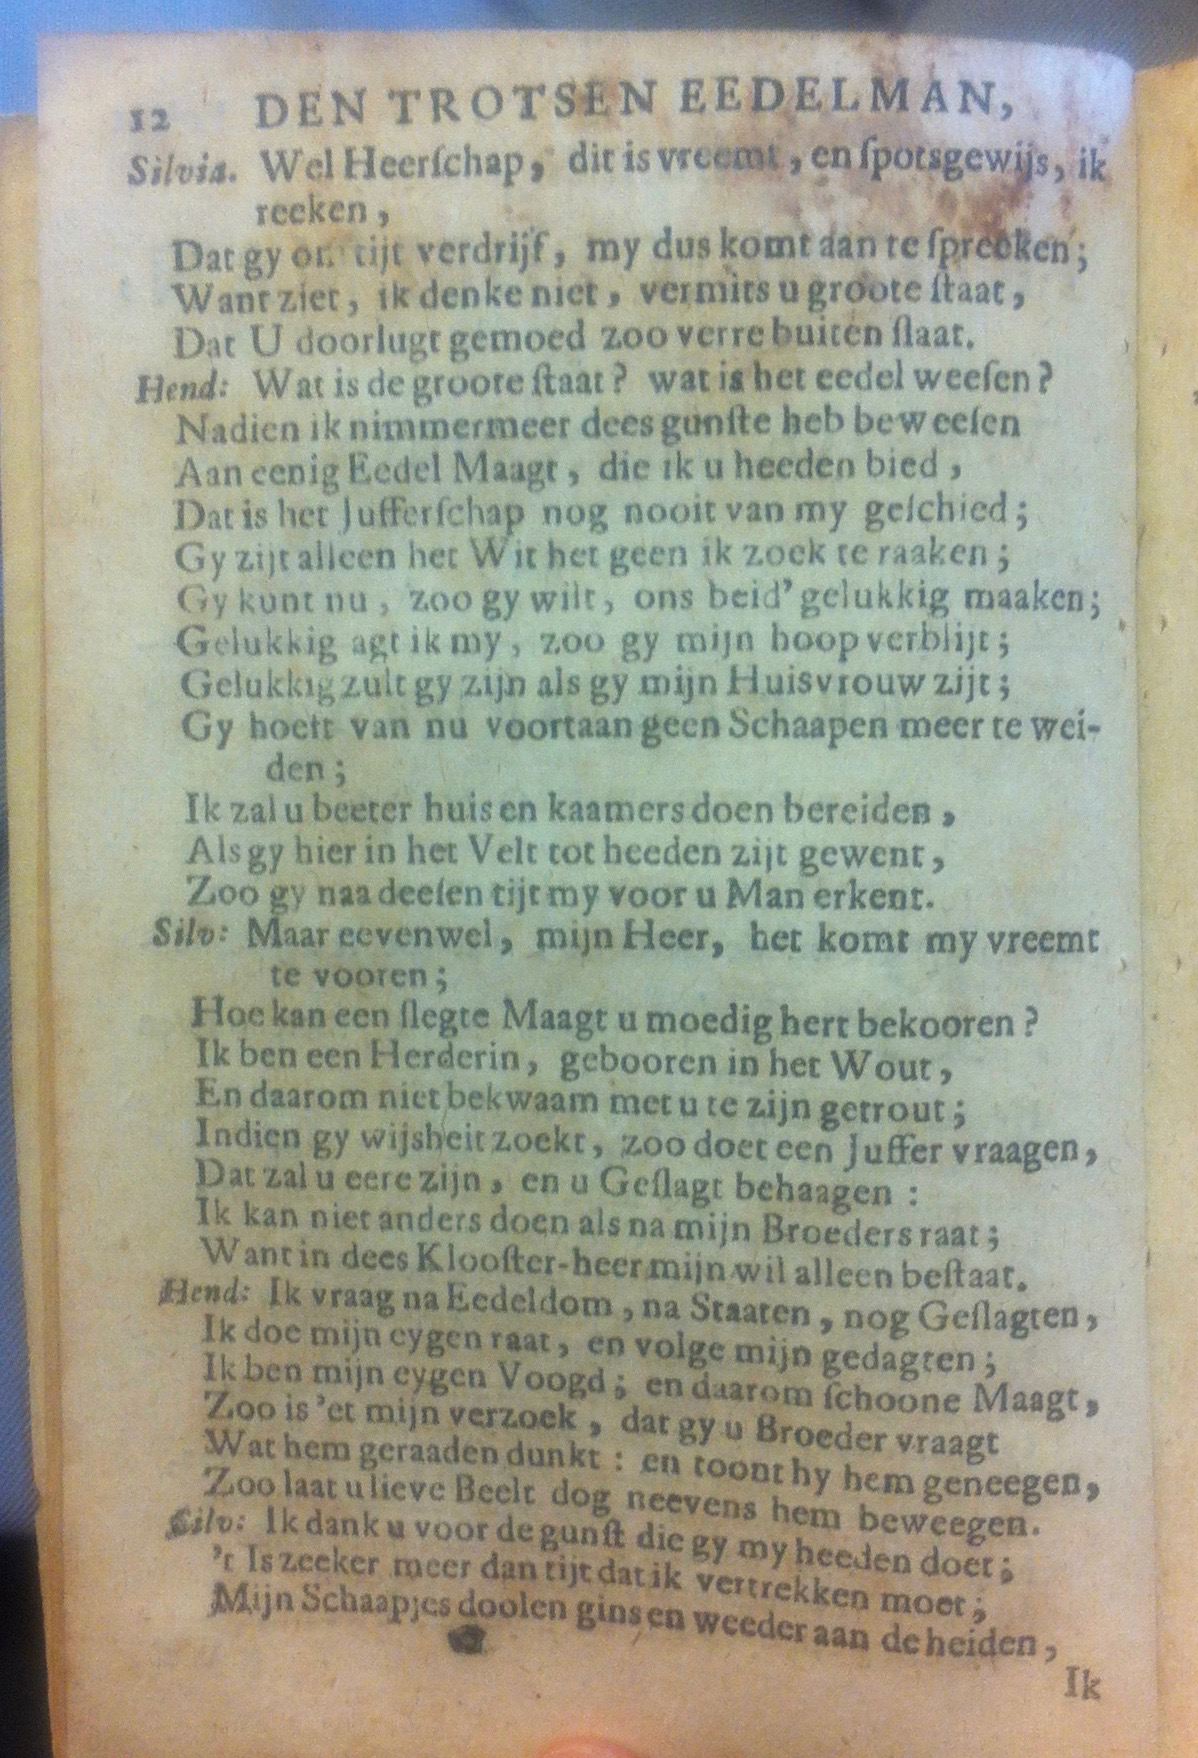 12 DEN TROTSEN EEDELMAN,
Silvia. Wel Heerſchap, dit is vreemt, en ſpotsgewijs, ik
reeken,
Dat gy om tijt verdrijf, my dus komt aan te ſpreeken;
Want ziet, ik denke niet, vermits u groote ſtaat,
Dat U doorlugt gemoed zoo verre buiten ſlaat.
Hend: Wat is de groote ſtaat? wat is het eedel weeſen?
Nadien ik nimmermeer dees gunſte heb beweeſen
Aan eenig Eedel Maagt, die ik u heeden bied,
Dat is het Jufferſchap nog nooit van my geſchied;
Gy zijt alleen het Wit het geen ik zoek te raaken;
Gy kunt nu, zoo gy wilt, ons beid' gelukkig maaken;
Gelukkig agt ik my, zoo gy mijn hoop verblijt;
Gelukkig zult gy zijn als gy mijn Huisvrouw zijt;
Gy hoeft van nu voortaan geen Schaapen meer te wei-
den;
Ik zal u beeter huis en kaamers doen bereiden,
Als gy hier in het Velt tot heeden zijt gewent,
Zoo gy naa deeſen tijt my voor u Man erkent.
Silv: Maar eevenwel, mijn Heer, het komt my vreemt
te vooren;
Hoe kan een ſlegte Maagt u moedig hert bekooren?
Ik ben een Herderin, gebooren in het Wout,
En daarom niet bekwaam met u te zijn getrout;
Indien gy wijsheit zoekt, zoo doet een Juffer vraagen,
Dat zal u eere zijn, en u Geſlagt behaagen:
Ik kan niet anders doen als na mijn Broeders raat;
Want in dees Klooſter-heer mijn wil alleen beſtaat.
Hend: Ik vraag na Eedeldom, na Staaten, nog Geſlagten,
Ik doe mijn eygen raat, en volge mijn gedagten;
Ik ben mijn eygen Voogd; en daarom ſchoone Maagt,
Zoo is 'et mijn verzoek, dat gy u Broeder vraagt
Wat hem geraaden dunkt: en toont hy hem geneegen,
Zoo laat u lieve Beelt dog neevens hem beweegen.
Silv: Ik dank u voor de gunſt die gy my heeden doet;
't Is zeeker meer dan tijt dat ik vertrekken moet;
Mijn Schaapjes doolen gins en weeder aan de heiden,
Ik